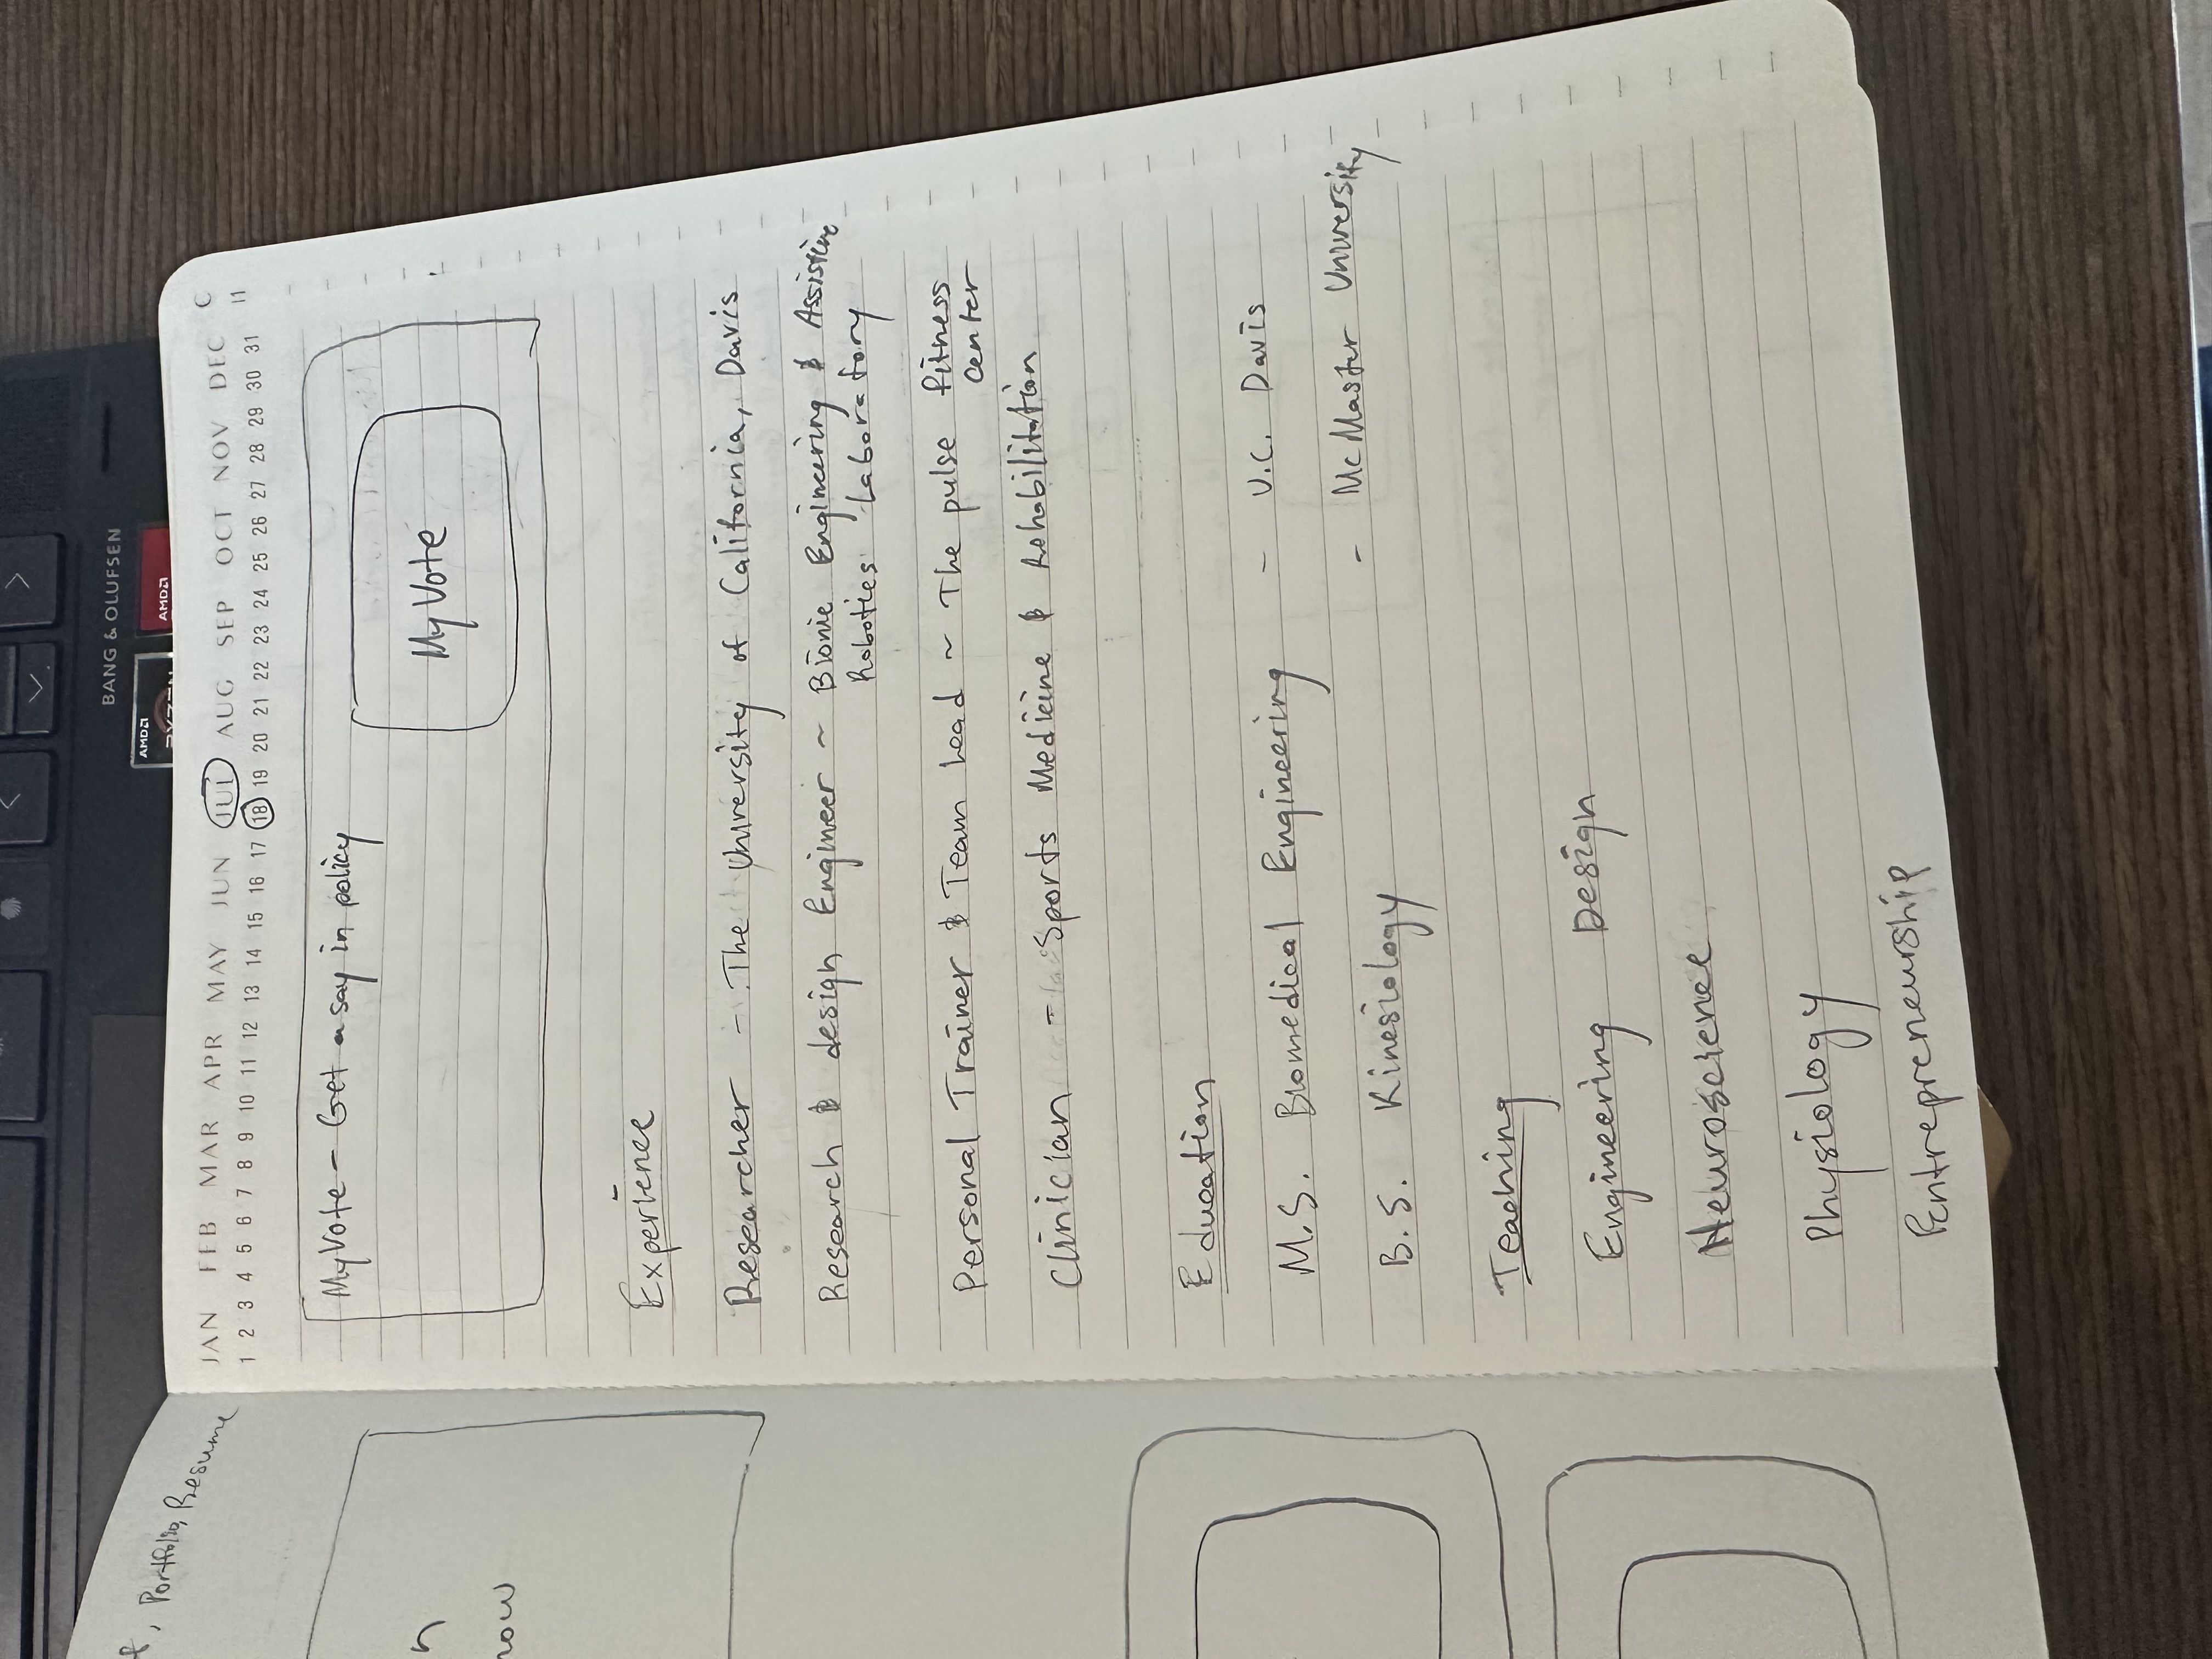 BANG & OLUFSEN
AMD
RYZEN
AMD
, Portfolio, Resume
now
JAN FEB MAR APR MAY JUN JUL AUG SEP OCT NOV DEC
1 2 3 4 5 6 7 8 9 10 11 12 13 14 15 16 17 18 19 20 21 22 23 24 25 26 27 28 29 30 31
MyVote - Get a say in policy
My Vote
Experience
Researcher - The University of California, Davis
Research & design Engineer ~ Bionic Engineering & Assistive
Robotics Laboratory
Personal Trainer & Team Lead ~ The pulse fitness
center
Clinician - Sports Medicine & Rehabilitation
Education
M.S. Biomedical Engineering - U.C. Davis
B.S. Kinesiology - McMaster University
Teaching
Engineering Design
Neuroscience
Physiology
Entrepreneurship